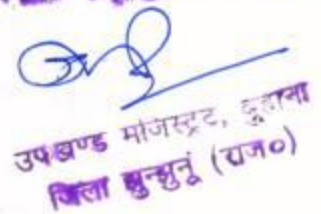 उपखण्ड मजिस्ट्रट, बुहाना
जिला झुन्झुनूं (राज०)